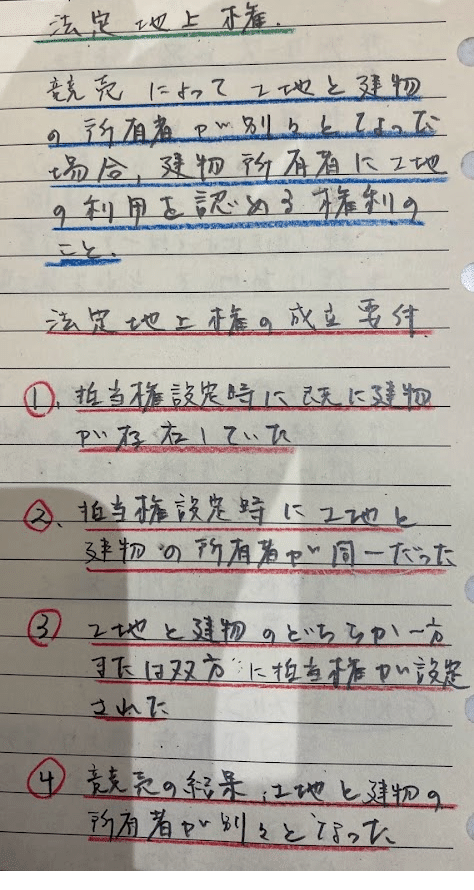 法定地上権.
競売によって土地と建物
の所有者が別々となった
場合,建物所有者に土地
の利用を認める権利の
こと.
法定地上権の成立要件.
①.抵当権設定時に既に建物
が存在していた
②、抵当権設定時に土地と
建物の所有者が同一だった
③ 土地と建物のどちらか一方
または双方に抵当権が設定
された
④ 競売の結果,土地と建物の
所有者が別々となった